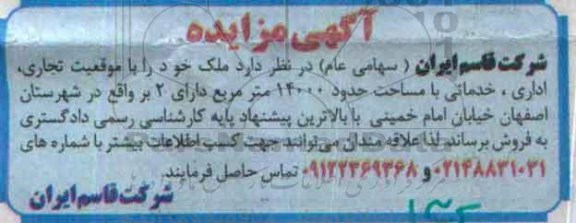 آگهی مزایده
شرکت قاسم ایران ( سهامی عام) در نظر دارد ملک خود را با موقعیت تجاری،
اداری ، خدماتی با مساحت حدود ۱۴۰۰۰ متر مربع دارای ۲ بر واقع در شهرستان
اصفهان خیابان امام خمینی با بالاترین پیشنهاد پایه کارشناسی رسمی دادگستری
به فروش برساند. لذا علاقه مندان می توانند جهت کسب اطلاعات بیشتر با شماره های
۰۲۱۴۸۸۳۱۰۳۱ و ۰۹۱۲۲۳۶۹۳۶۸ تماس حاصل فرمایند.
شرکت قاسم ایران